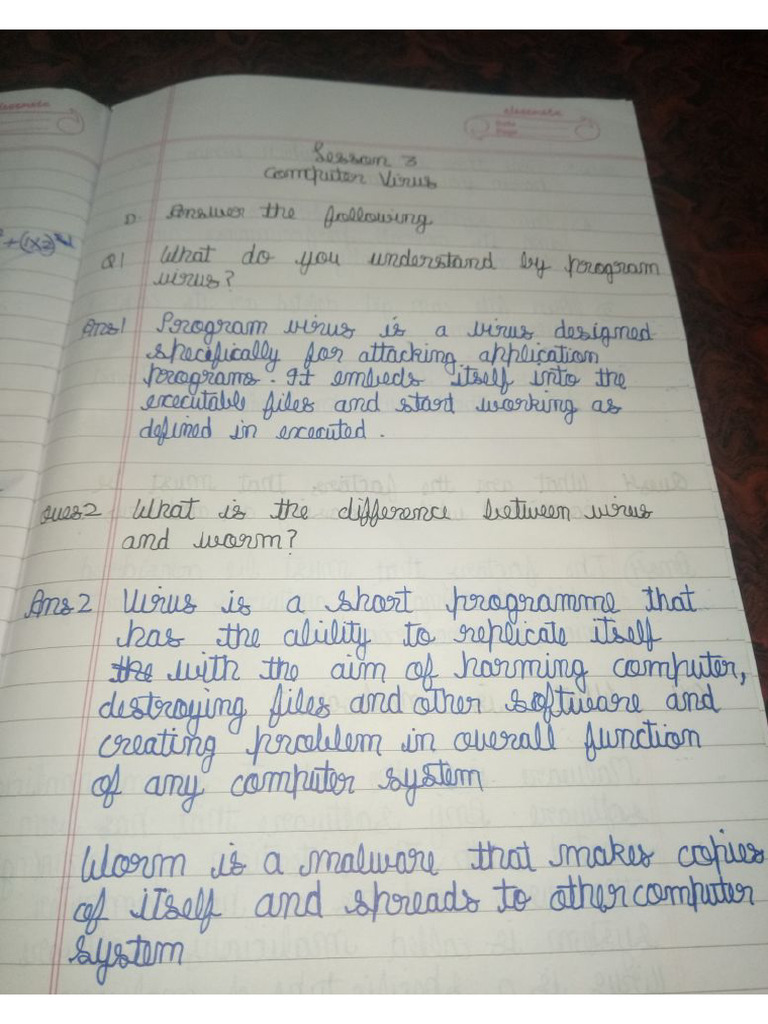 classmate
Date
Page
Session 3
Computer Virus
D. Answer the following
+(1×2)
Q1 What do you understand by program
virus?
Ans1 Program virus is a virus designed
specifically for attacking application
programs. It embeds itself into the
executable files and start working as
defined in executed.
Ques2 What is the difference between virus
and worm?
Ans 2 Virus is a short programme that
has the ability to replicate itself
the with the aim of harming computer,
destroying files and other software and
creating problem in overall function
of any computer system
Worm is a malware that makes copies
of itself and spreads to other computer
system